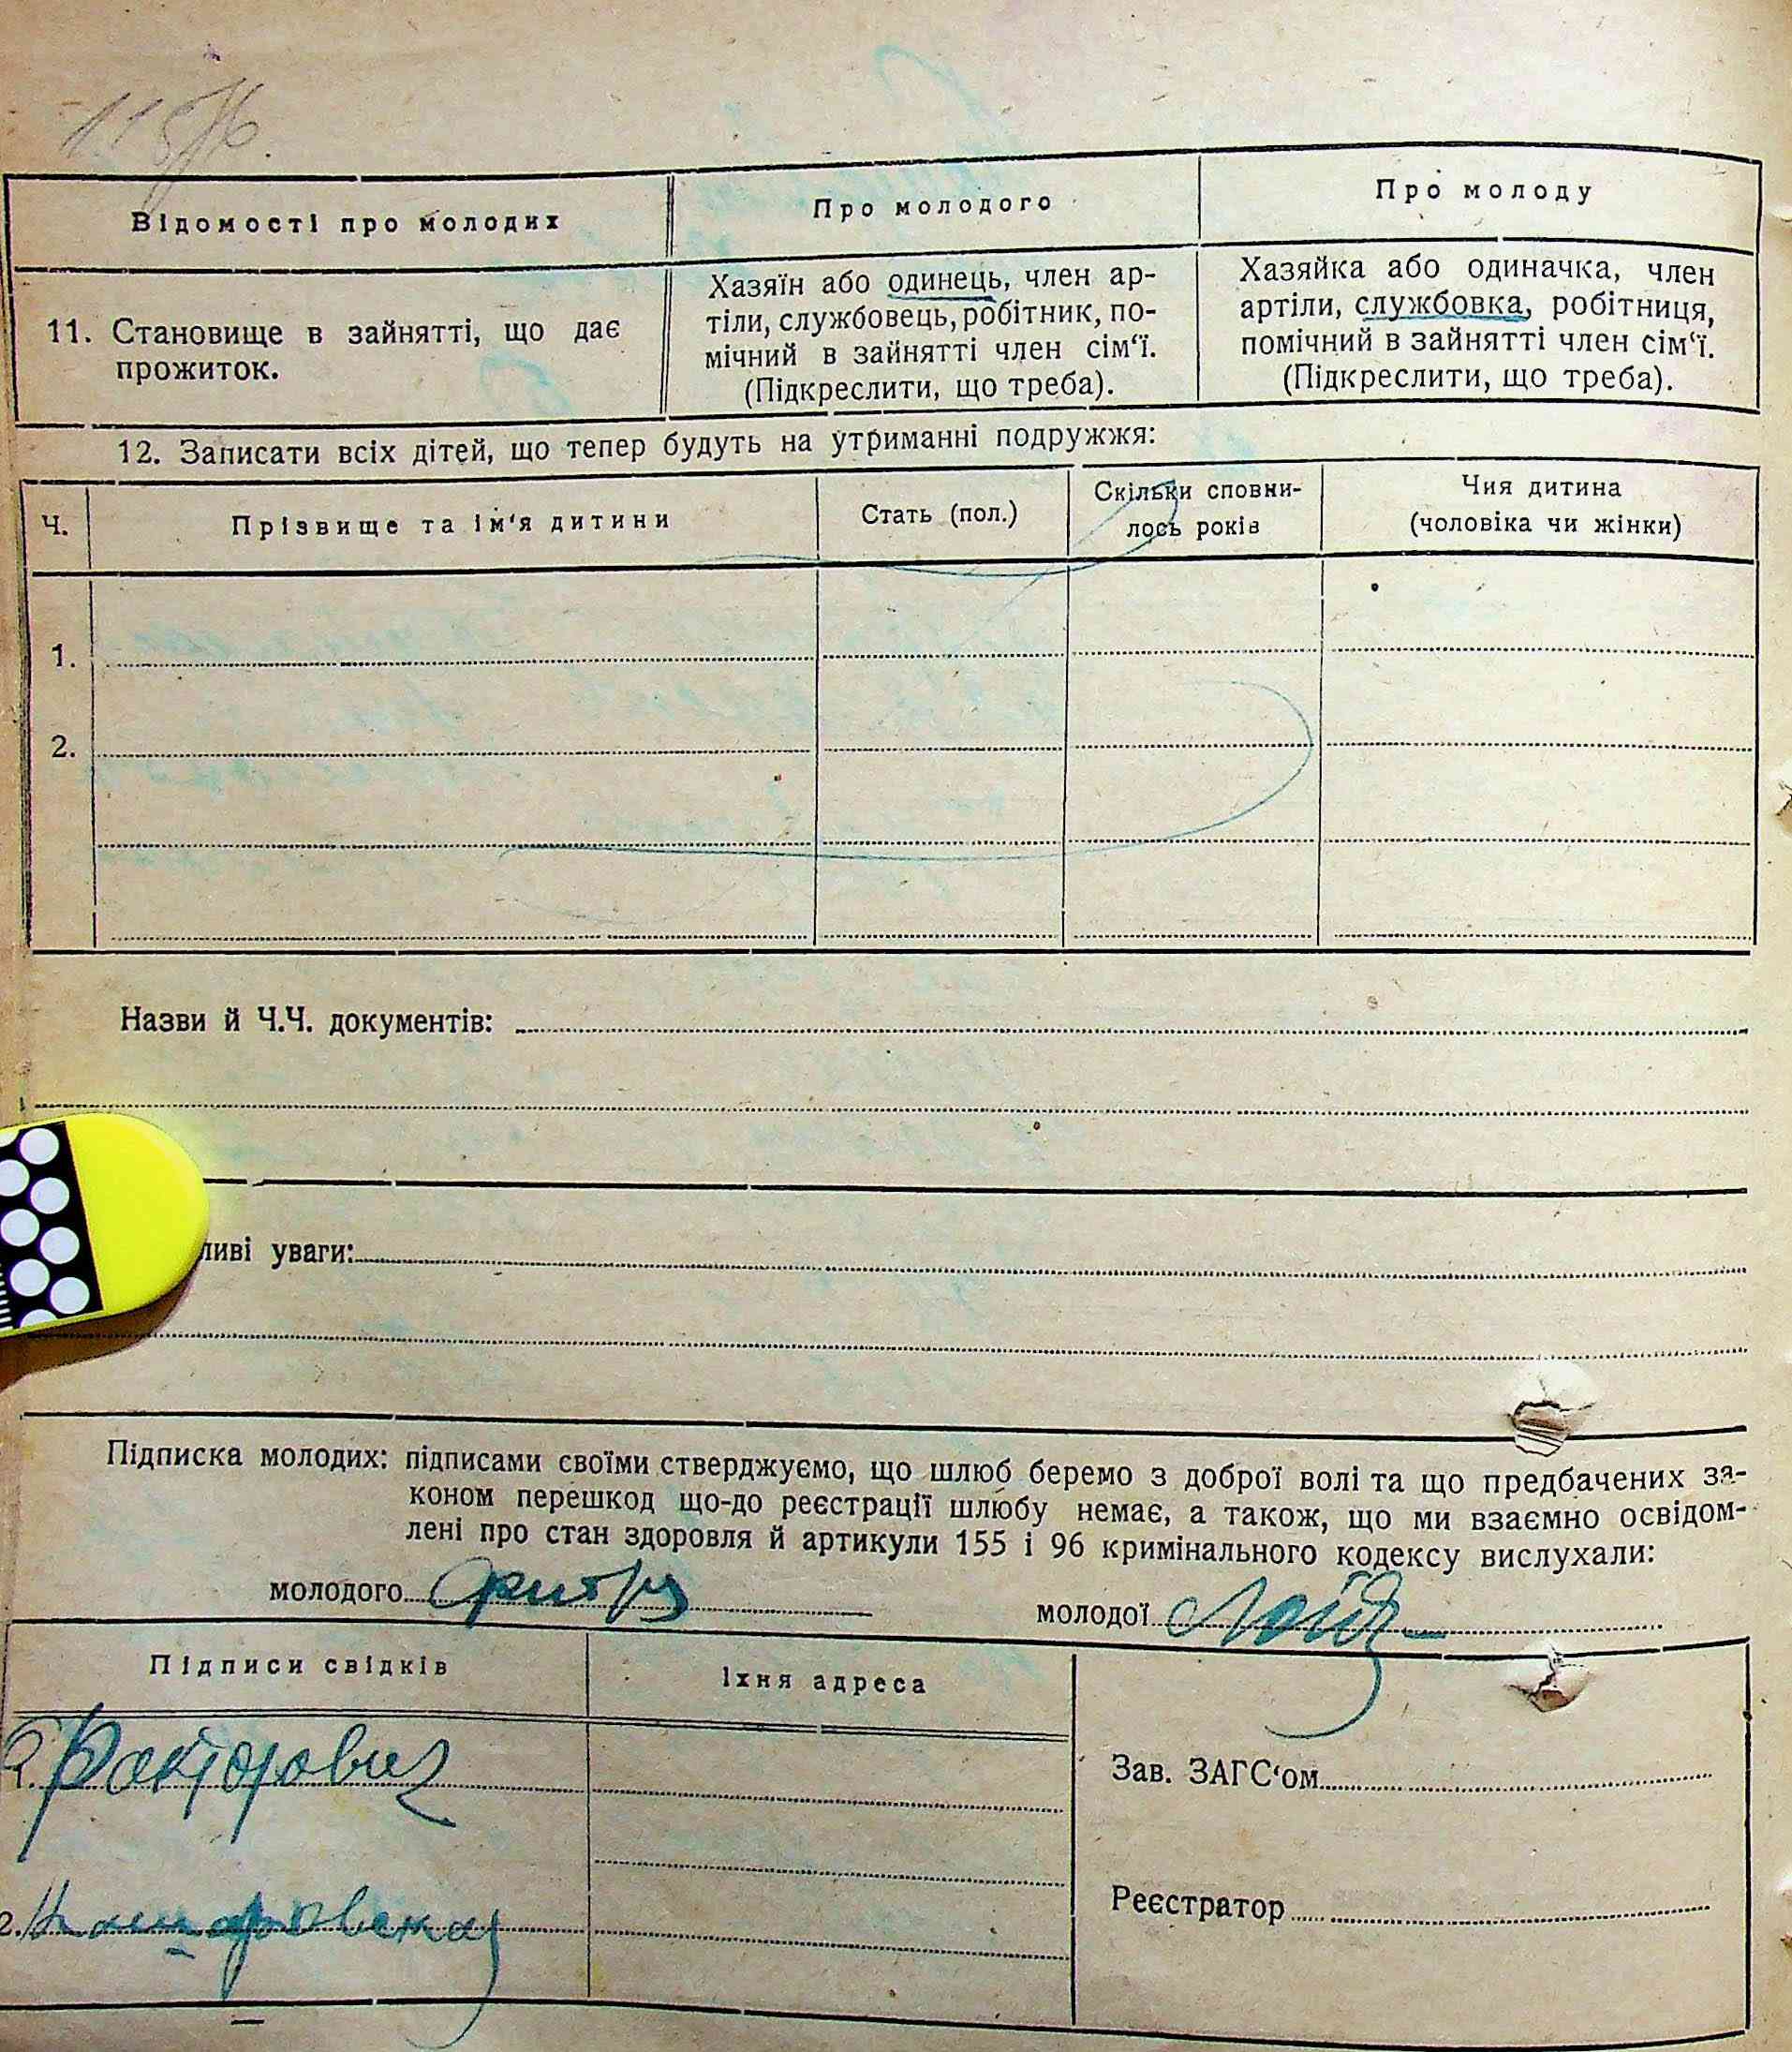 Відомості про молодих
Про молодого
Про молоду
11. Становище в зайнятті, що дає
прожиток.
Хазяїн або одинець, член ар-
тіли, службовець, робітник, по-
мічний в зайнятті член сім‘ї.
(Підкреслити, що треба).
Хазяйка або одиначка, член
артіли, службовка, робітниця,
помічний в зайнятті член сім‘ї.
(Підкреслити, що треба).
12. Записати всіх дітей, що тепер будуть на утриманні подружжя:
Ч.
Прізвище та ім‘я дитини
Стать (пол.)
Скільки сповни-
лось років
Чия дитина
(чоловіка чи жінки)
1.
2.
Назви й Ч.Ч. документів:
ливі уваги:
Підписка молодих: підписами своїми стверджуємо, що шлюб беремо з доброї волі та що предбачених за-
коном перешкод що-до реєстрації шлюбу немає, а також, що ми взаємно освідом-
лені про стан здоровля й артикули 155 і 96 кримінального кодексу вислухали:
молодого
молодої
Підписи свідків
Їхня адреса
Факторович
2.
Зав. ЗАГС‘ом
Реєстратор